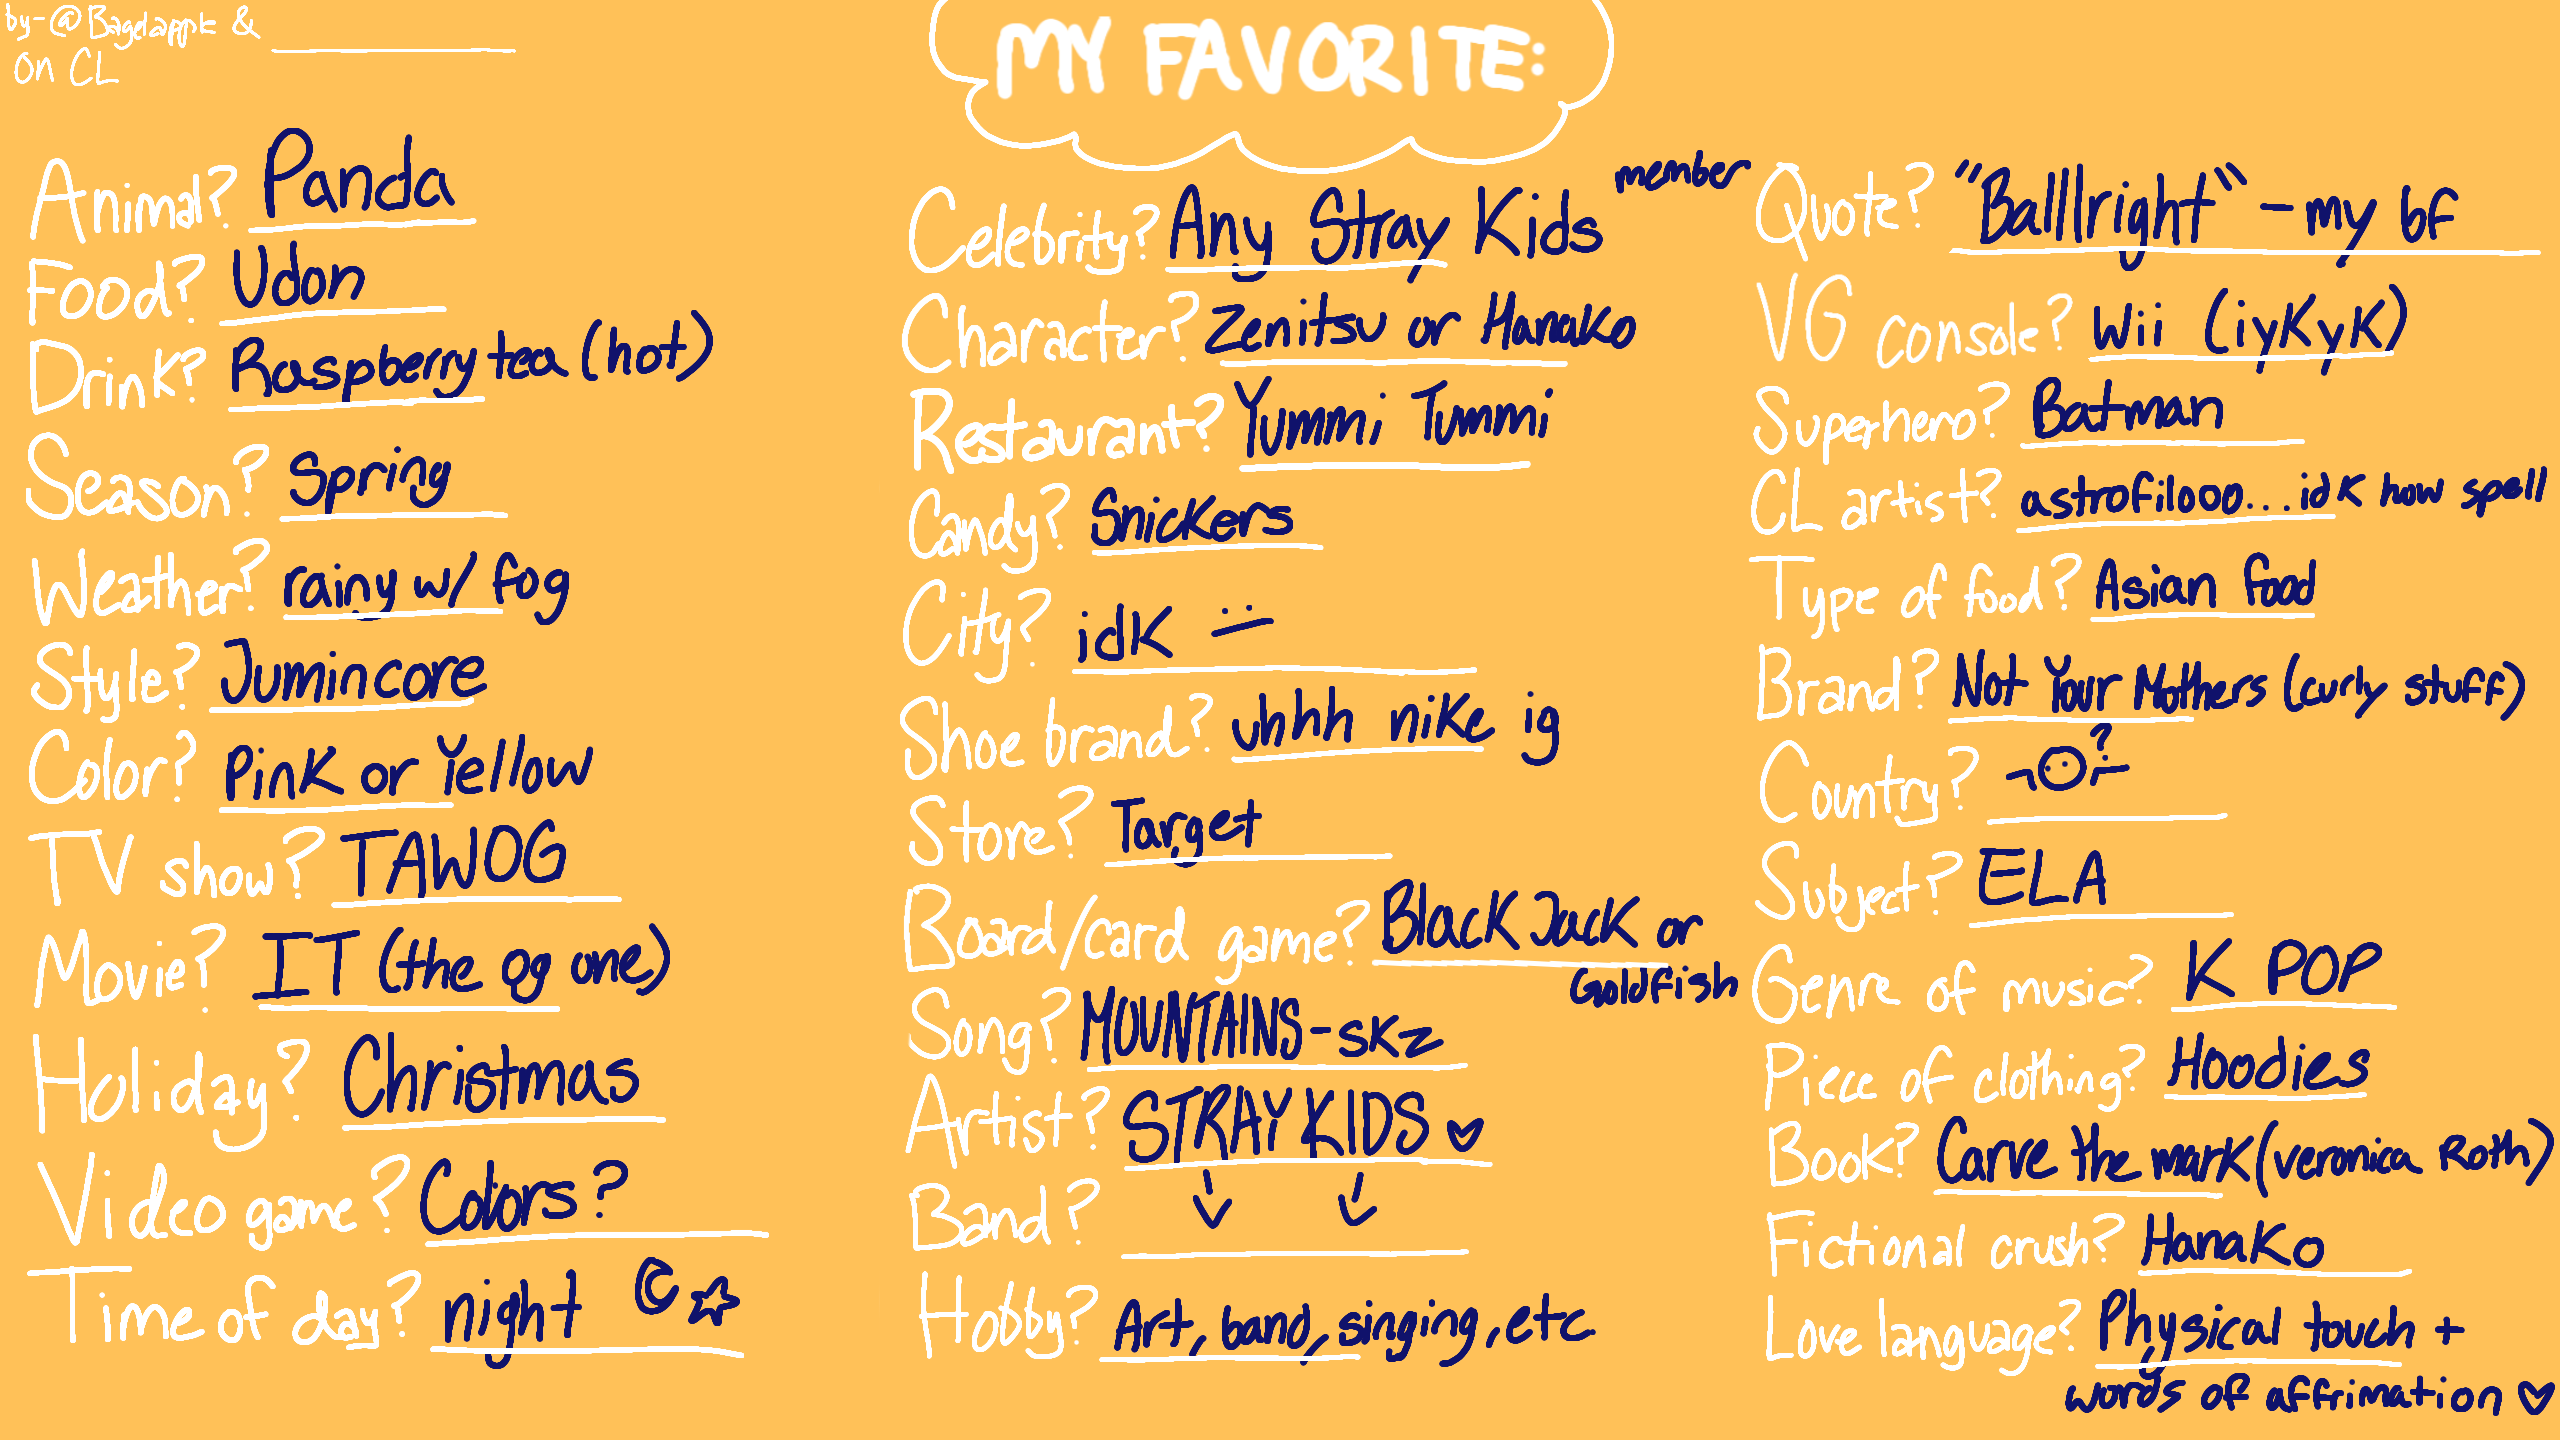 by-@Bagelappk &
on CL
MY FAVORITE:
Animal? Panda
Food? Udon
Drink? Raspberry tea (hot)
Season? Spring
Weather? rainy w/ fog
Style? Jumincore
Color? Pink or Yellow
TV show? TAWOG
Movie? IT (the og one)
Holiday? Christmas
Video game? Colors?
Time of day? night
Celebrity? Any Stray Kids member
Character? Zenitsu or Hanako
Restaurant? Yummi Tummi
Candy? Snickers
City? idk
Shoe brand? uhhh nike ig
Store? Target
Board/card game? Black Jack or
Goldfish
Song? MOUNTAINS-skz
Artist? STRAY KIDS
Band?
Hobby? Art, band, singing, etc.
Quote? "Balllright" - my bf
VG console? Wii (iykyk)
Superhero? Batman
CL artist? astrofilooo...idk how spell
Type of food? Asian food
Brand? Not Your Mothers (curly stuff)
Country? ?
Subject? ELA
Genre of music? K POP
Piece of clothing? Hoodies
Book? Carve the mark (veronica Roth)
Fictional crush? Hanako
Love language? Physical touch +
words of affrimation